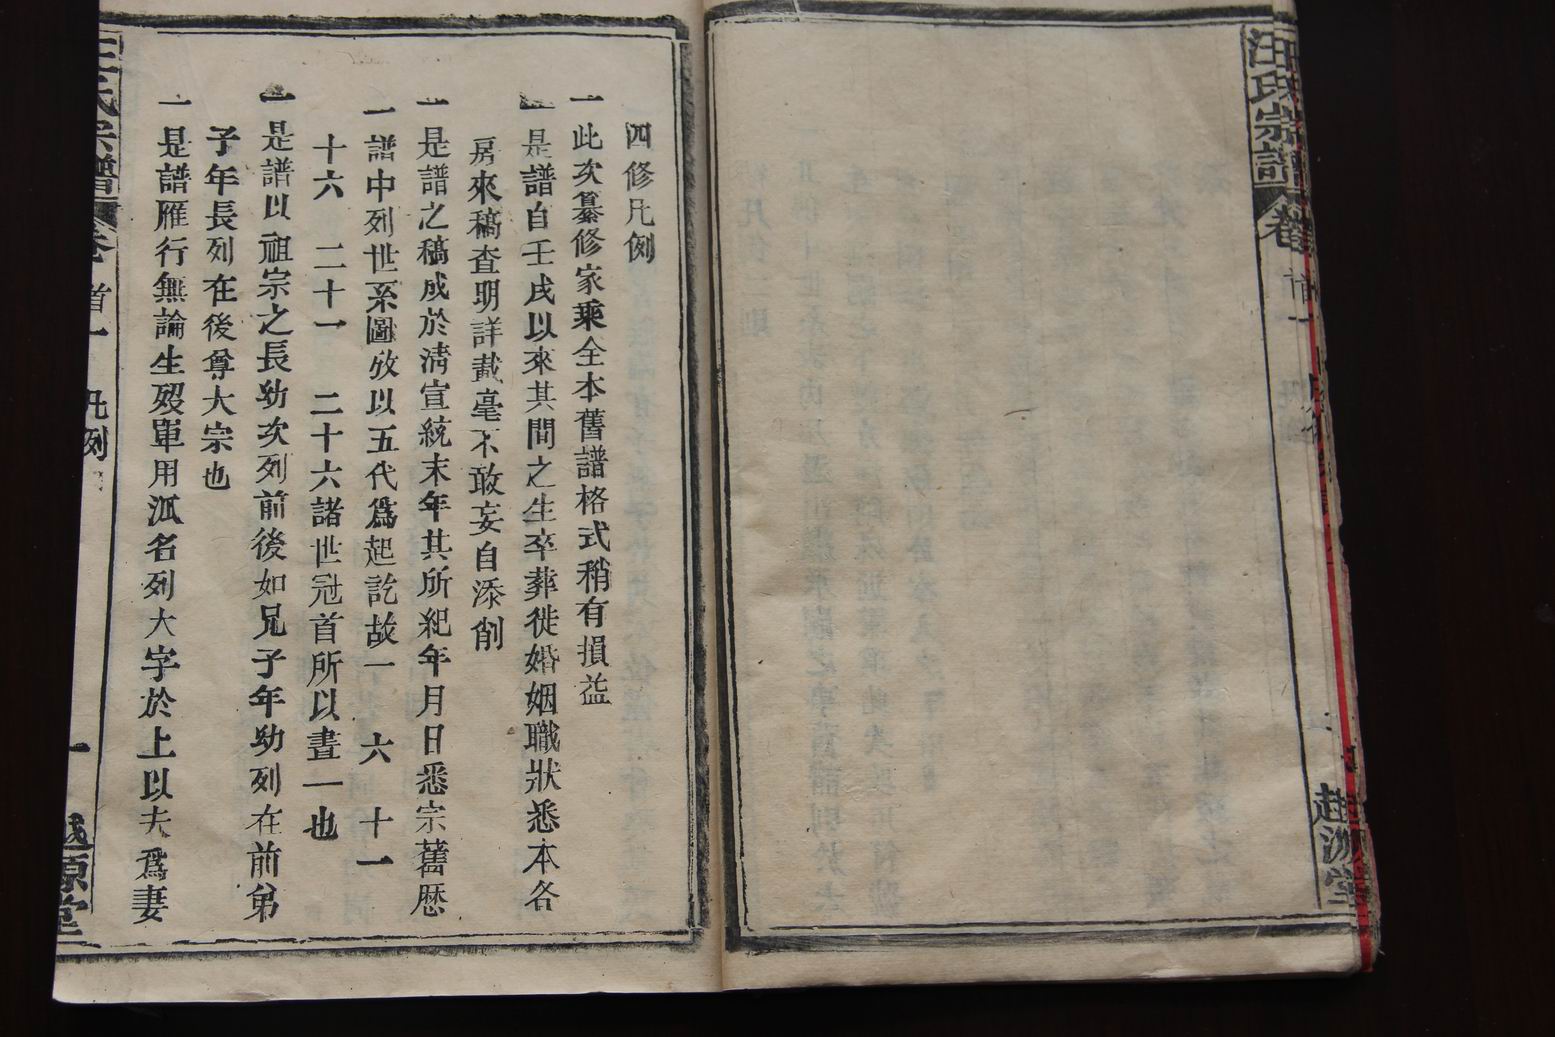 汪氏宗譜
卷首一
越源堂
四修凡例
一此次纂修家乘全本舊譜格式稍有損益
一是譜自壬戌以來其間之生卒葬徙婚姻職狀悉本各
房來稿查明詳載毫不敢妄自添削
一是譜之稿成於清宣統末年其所紀年月日悉宗舊曆
一譜中列世系圖攷以五代爲起訖故一 六 十一
十六 二十一 二十六諸世冠首所以晝一也
一是譜以祖宗之長幼次列前後如兄子年幼列在前弟
子年長列在後尊大宗也
一是譜雁行無論生歿單用派名列大字於上以夫爲妻
汪氏宗譜
卷首一
凡例
一
越源堂